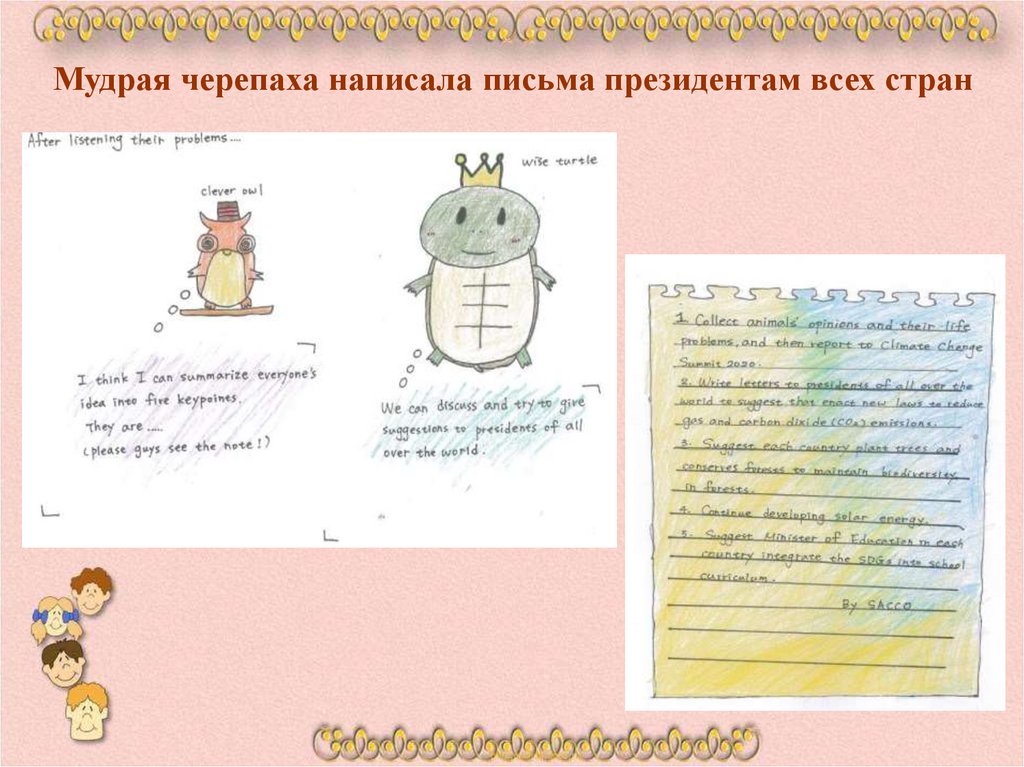 Мудрая черепаха написала письма президентам всех стран
After listening their problems....
clever owl
wise turtle
I think I can summarize everyone's
idea into five keypoints.
They are .....
(please guys see the note!)
We can discuss and try to give
suggestions to presidents of all
over the world.
1. Collect animals' opinions and their life
problems, and then report to Climate Change
Summit 2020.
2. Write letters to presidents of all over the
world to suggest that enact new laws to reduce
gas and carbon dixide (CO₂) emissions.
3. Suggest each country plant trees and
conserves forests to maintain biodiversity
in forests.
4. Continue developing solar energy.
5. Suggest Minister of Education in each
country integrate the SDGs into school
curriculum.
By SACCO